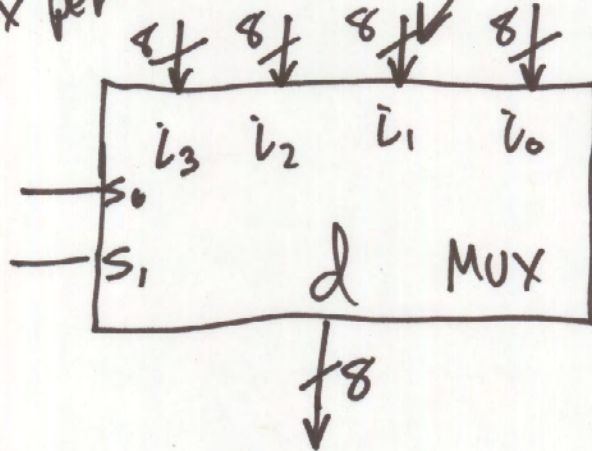 x per
8 8 8 8
i₃ i₂ i₁ i₀
S₀
S₁ d MUX
8